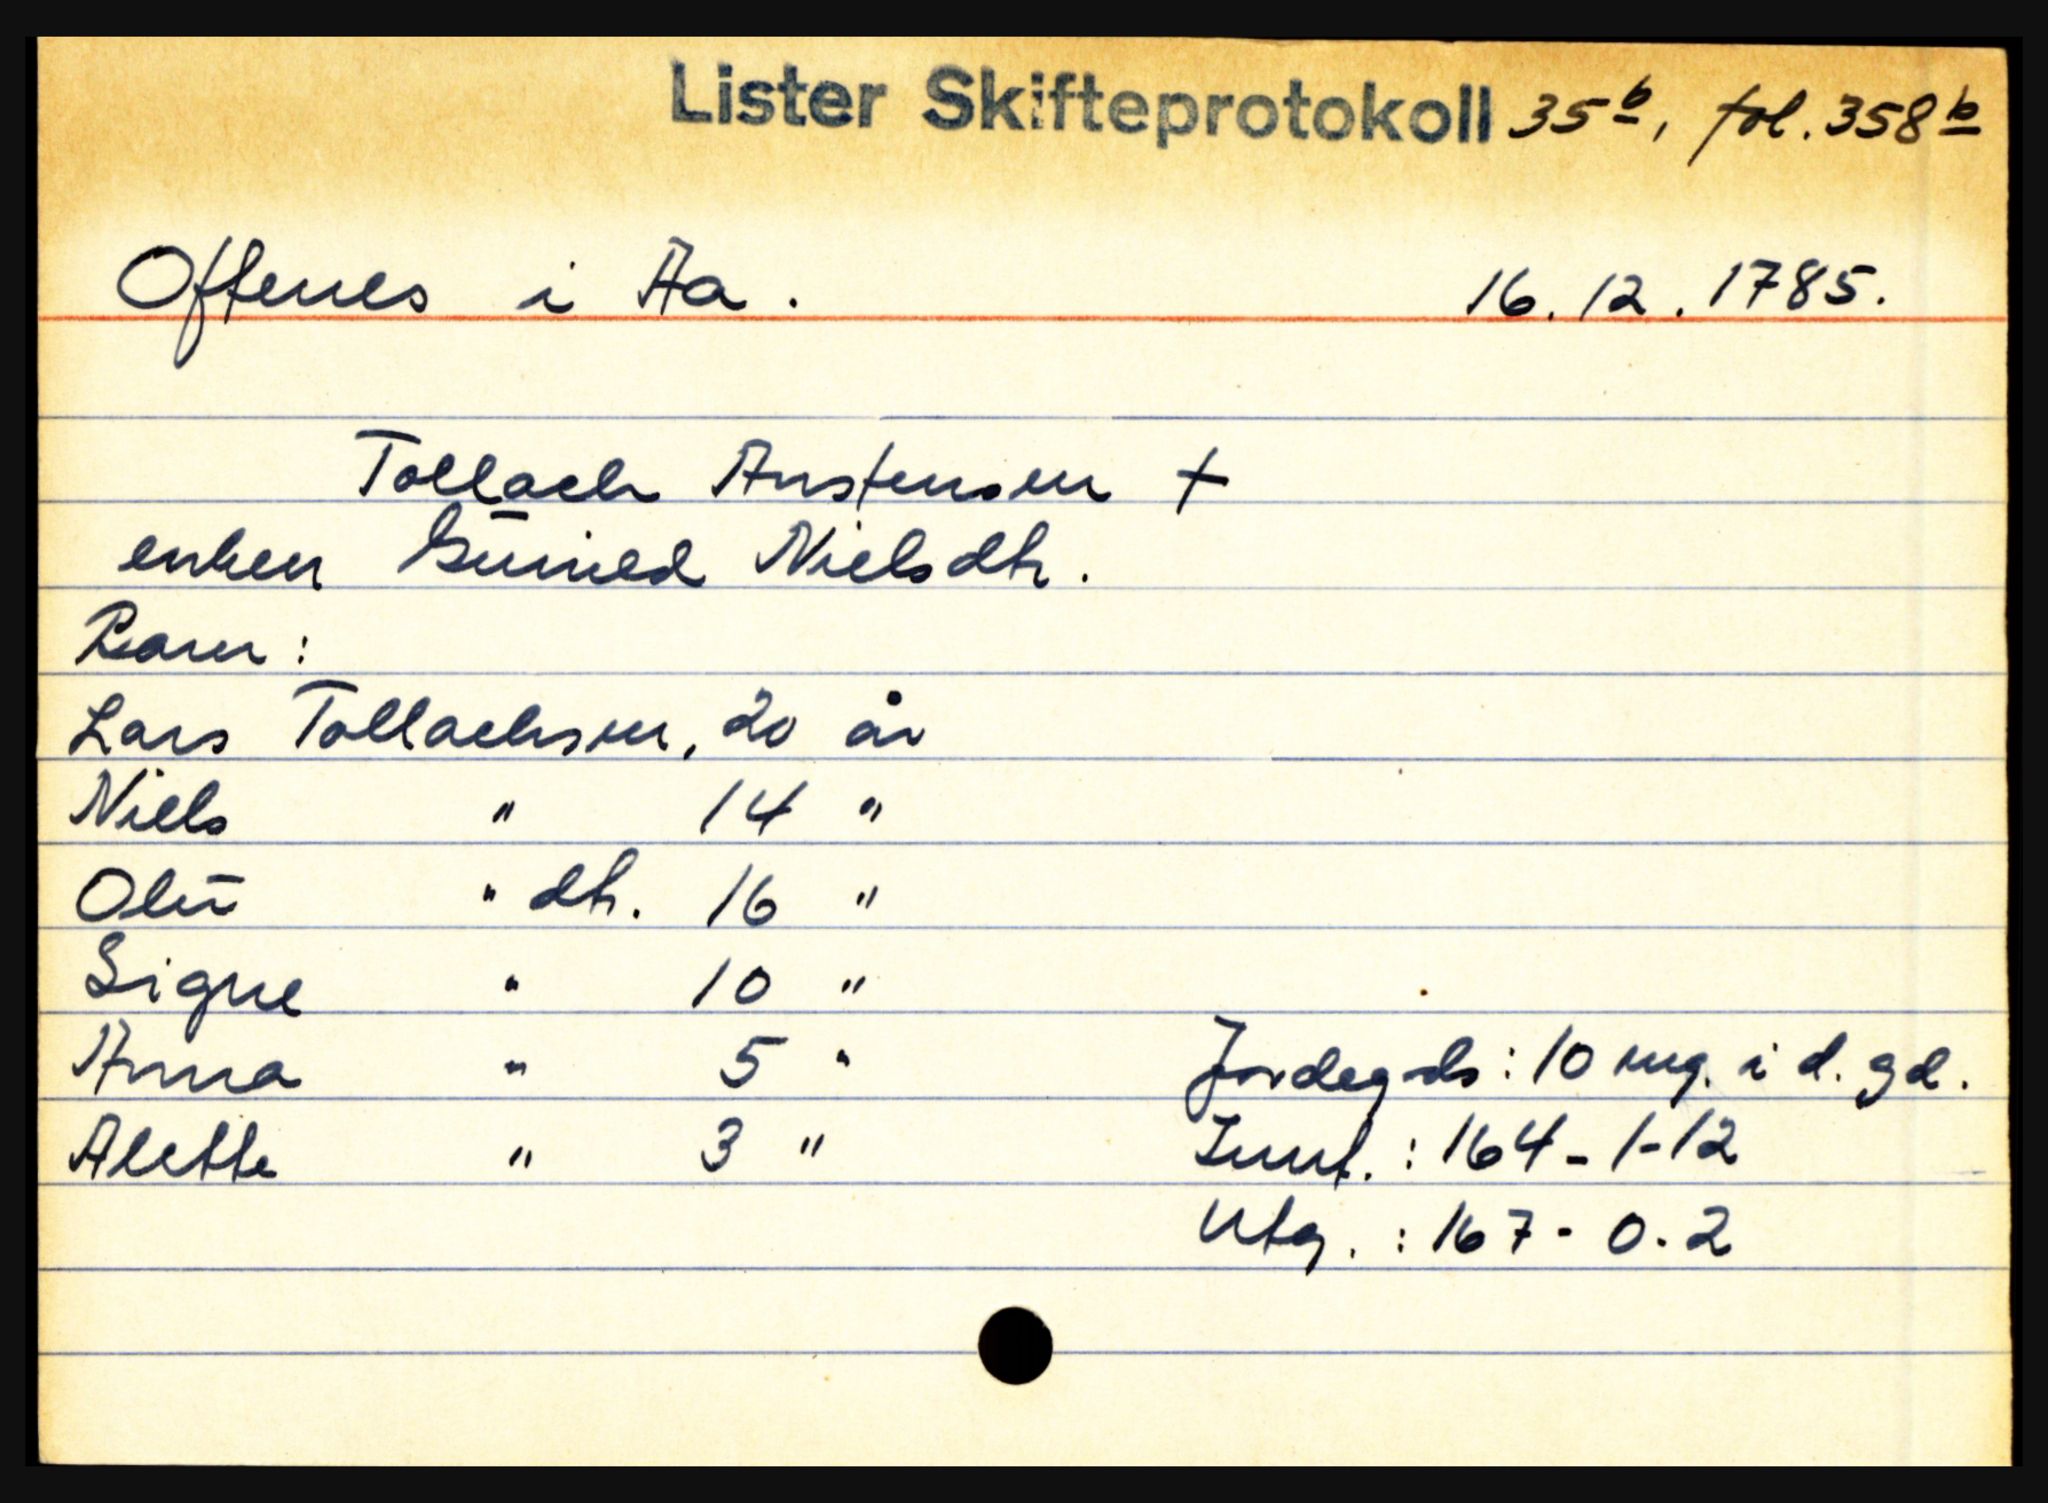 Lister Skifteprotokoll 35b, fol. 358b
Offenes i Aa. 16.12.1785.
Tollach Anstensen +
enken Guned Nielsdtr.
Barn:
Lars Tollachsen, 20 år
Niels " 14 "
Olu " dtr. 16 "
Signe " 10 "
Anna " 5 "
Alette " 3 "
Jordegds: 10 mg. i d. gd.
Innt.: 164-1-12
Utg.: 167-0-2